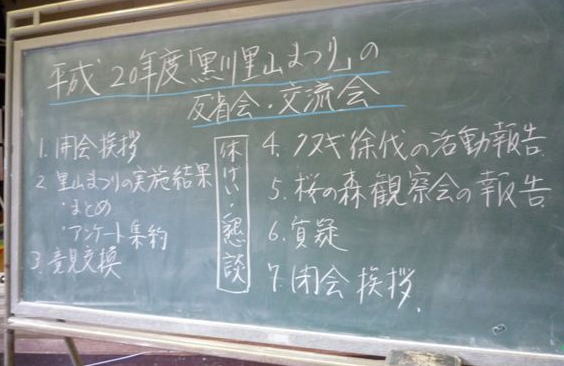 平成20年度「黒川里山まつり」の
反省会・交流会
1. 開会挨拶
2. 里山まつりの実施結果
・まとめ
・アンケート集約
3. 意見交換
休けい・懇談
4. クヌギ徐伐の活動報告
5. 桜の森観察会の報告
6. 質疑
7. 閉会挨拶.